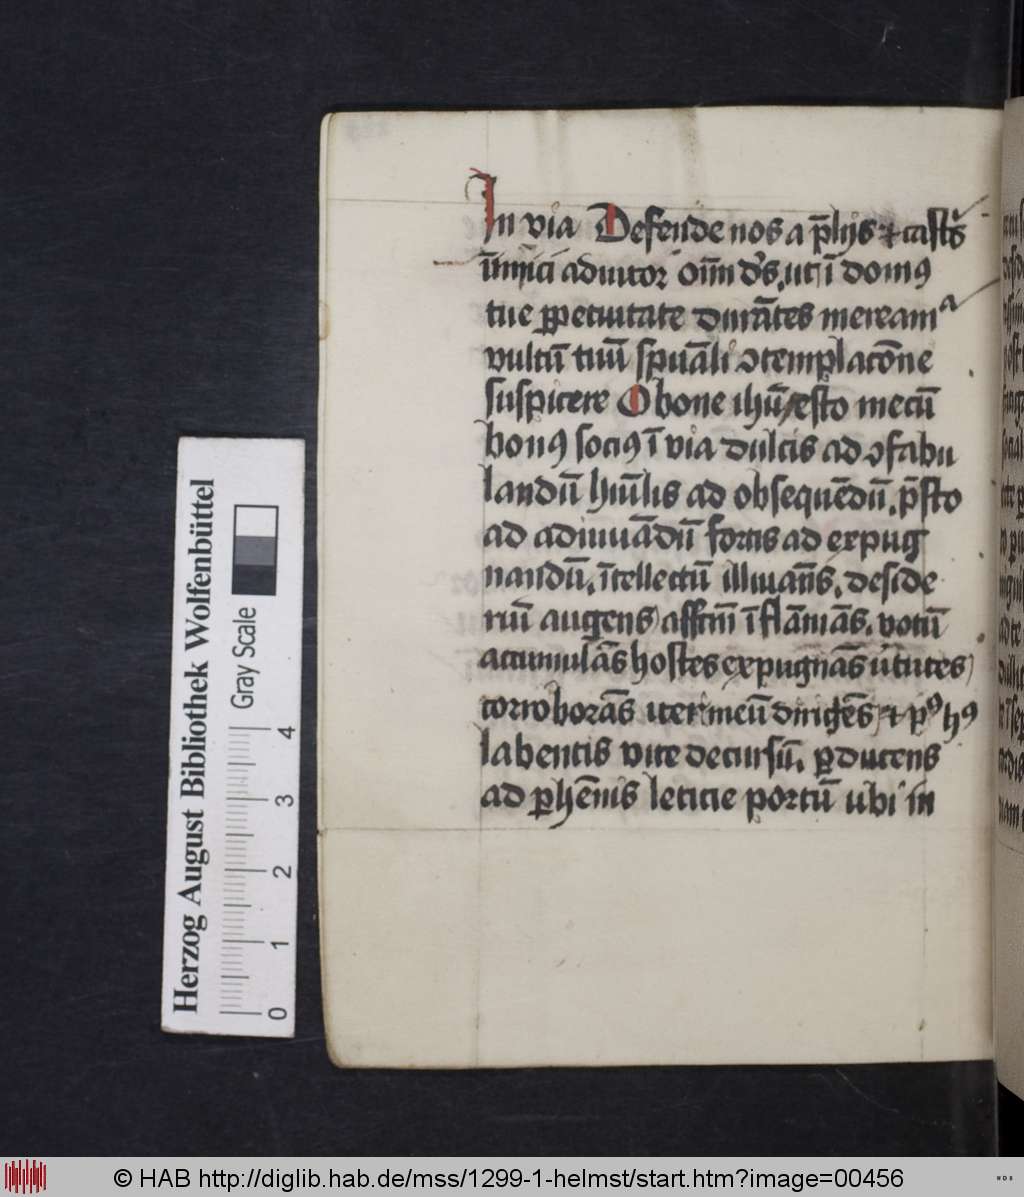 In via Defende nos a p̄lijs ⁊ castꝭ
ī́imici adiutor oīm dꝰs, ut ī domꝯ
tue ꝑpetuitate durātes meream᷑
vultū tuū spūāli ↄtemplacōne
suspicere O bone ihū esto mecū
bonꝯ sociꝯ ī via dulcis ad ↄfabu
landū hūīlis ad obsequēdū, p̄sto
ad adiuuādū fortis ad expug
nandū, ītellectū illuīans, deside
riū augens affc̄m īflāmās, votū
accumulās hostes expugnās v̄tutes
corroborās iter meū dirigēs ⁊ pꝰ hꝯ
labentis vite decursū, ꝑducens
ad ꝑhēnis leticie portū ubi in
Herzog August Bibliothek Wolfenbüttel
Gray Scale
0 1 2 3 4
© HAB http://diglib.hab.de/mss/1299-1-helmst/start.htm?image=00456